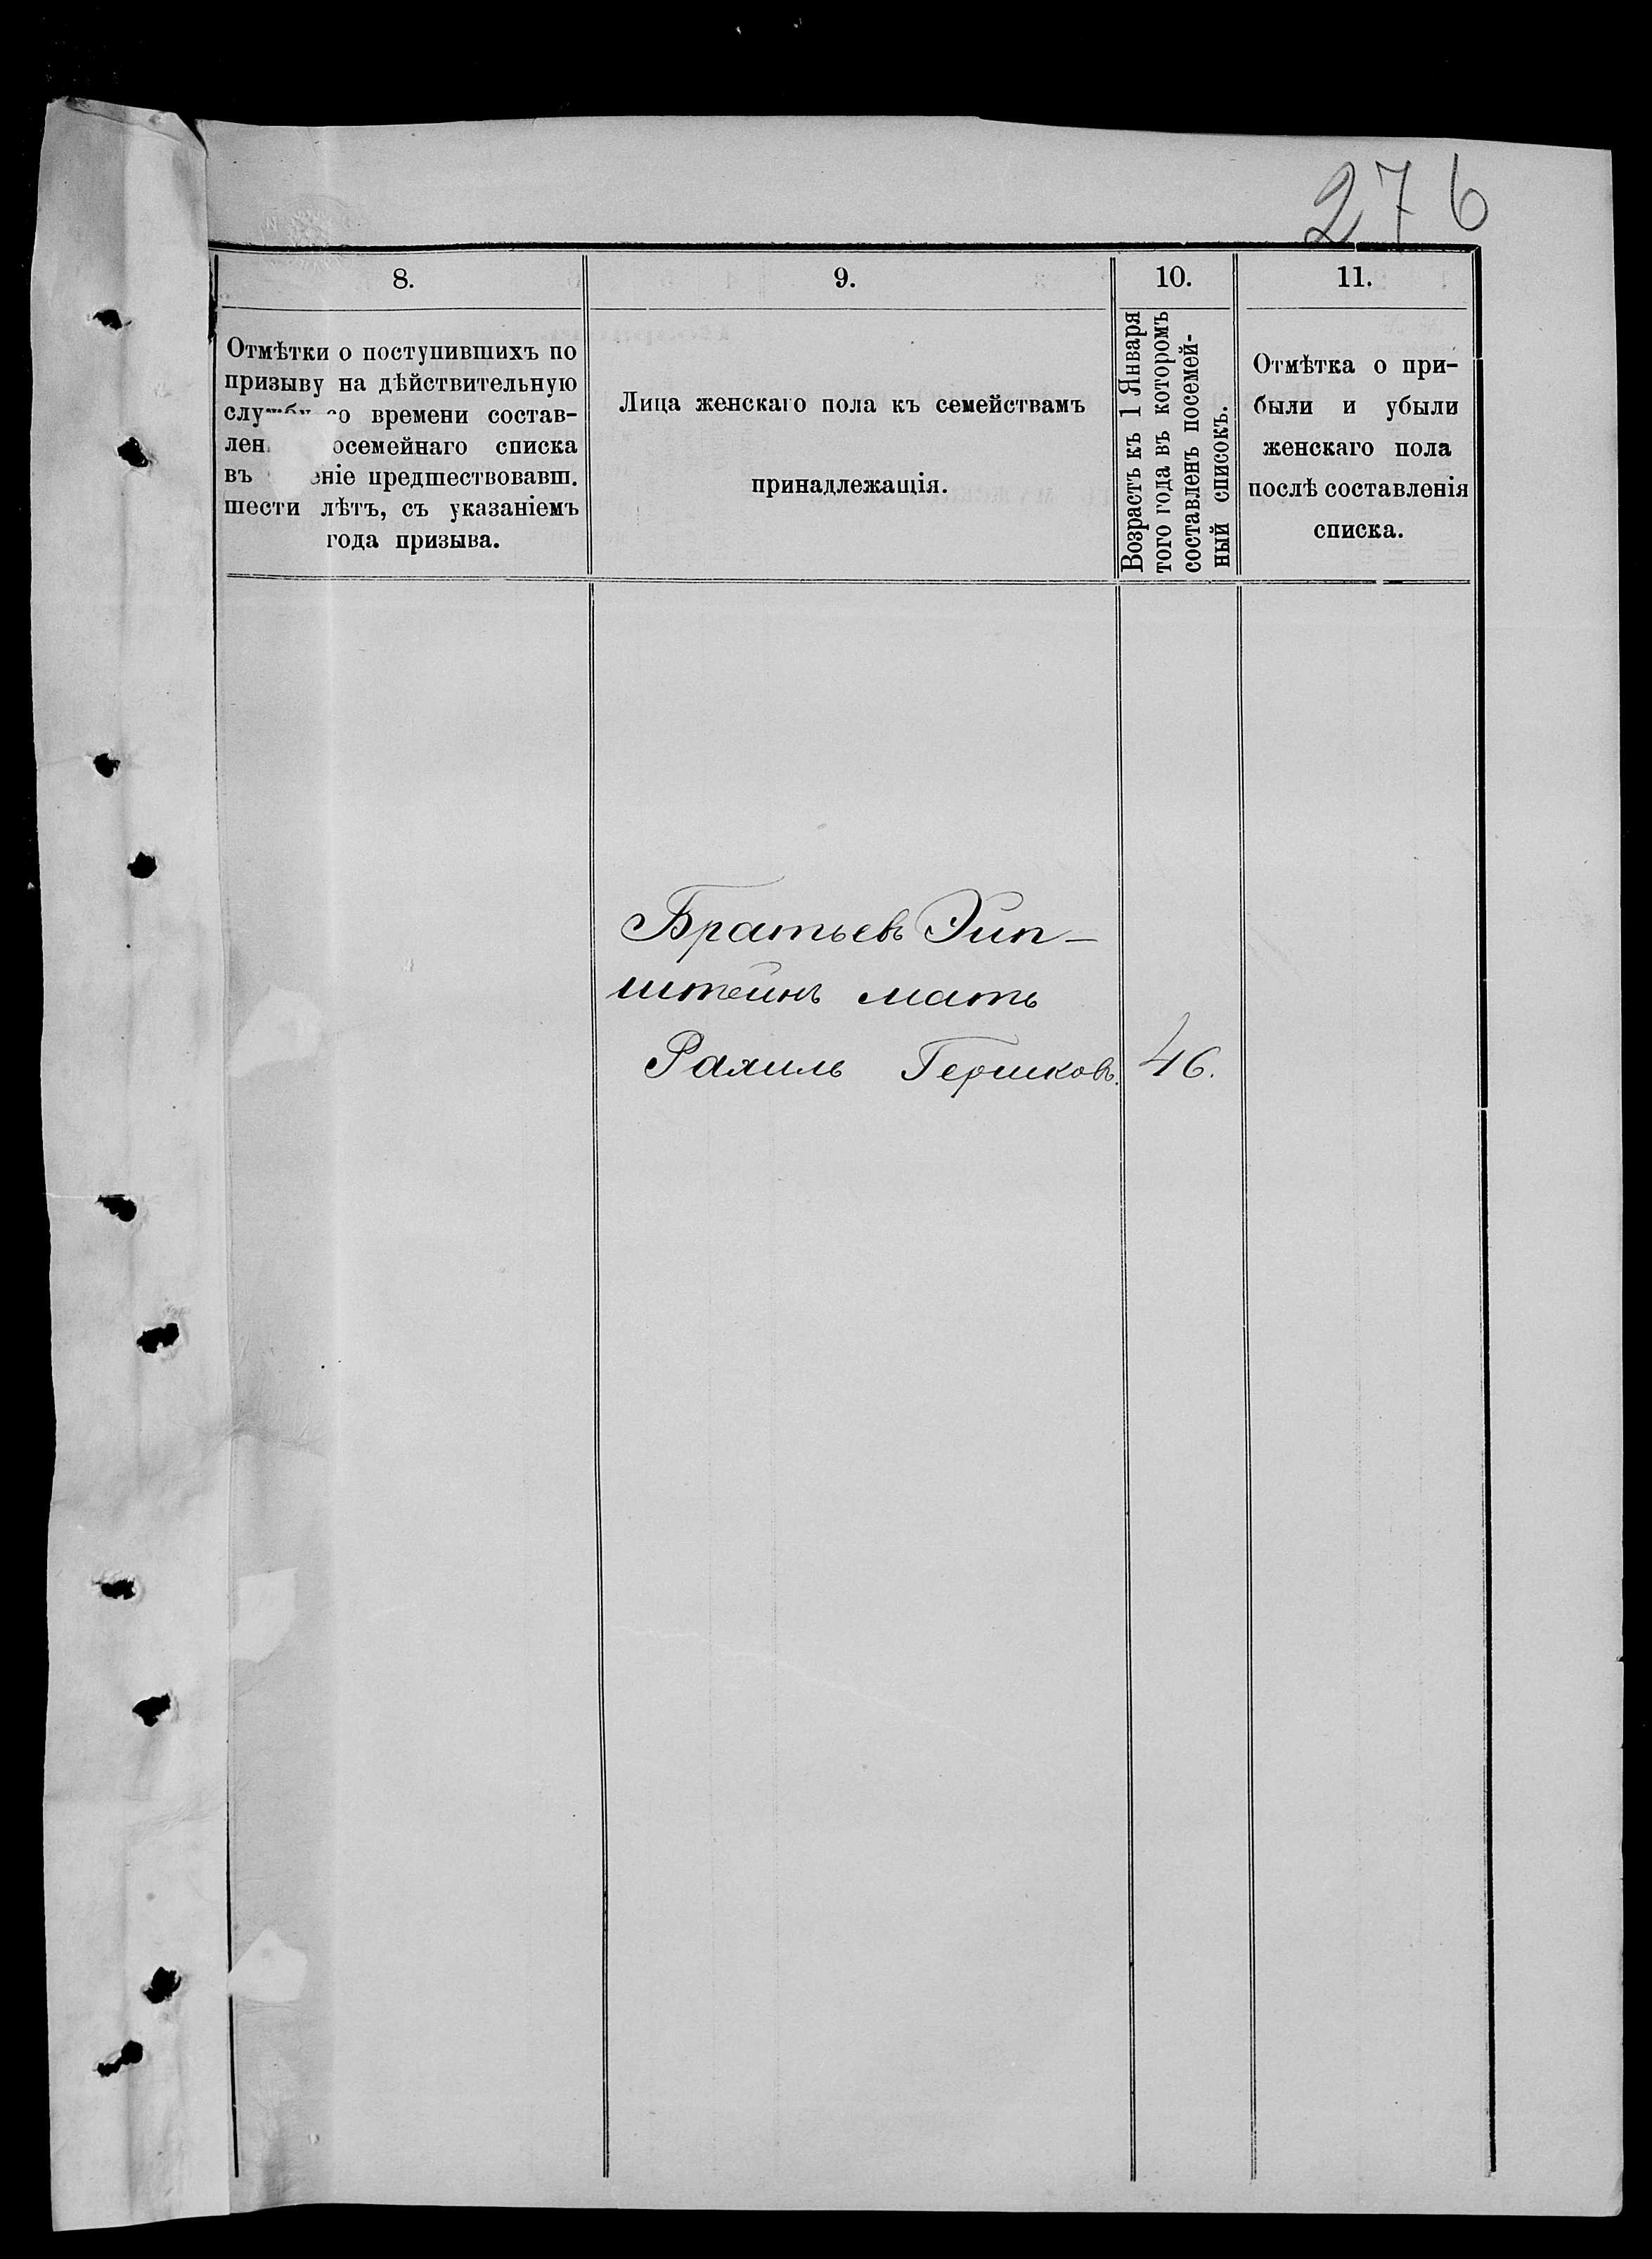 276
8.
Отмѣтки о поступившихъ по
призыву на дѣйствительную
службу со времени состав-
лен осемейнаго списка
въ еніе предшествовавш.
шести лѣтъ, съ указаніемъ
года призыва.
9.
Лица женскаго пола къ семействамъ
принадлежащія.
10.
Возрастъ къ 1 Января
того года въ которомъ
составленъ посемей-
ный списокъ.
11.
Отмѣтка о при-
были и убыли
женскаго пола
послѣ составленія
списка.
Братьевъ Эип-
штейнъ мать
Рахиль Гершков. 46.